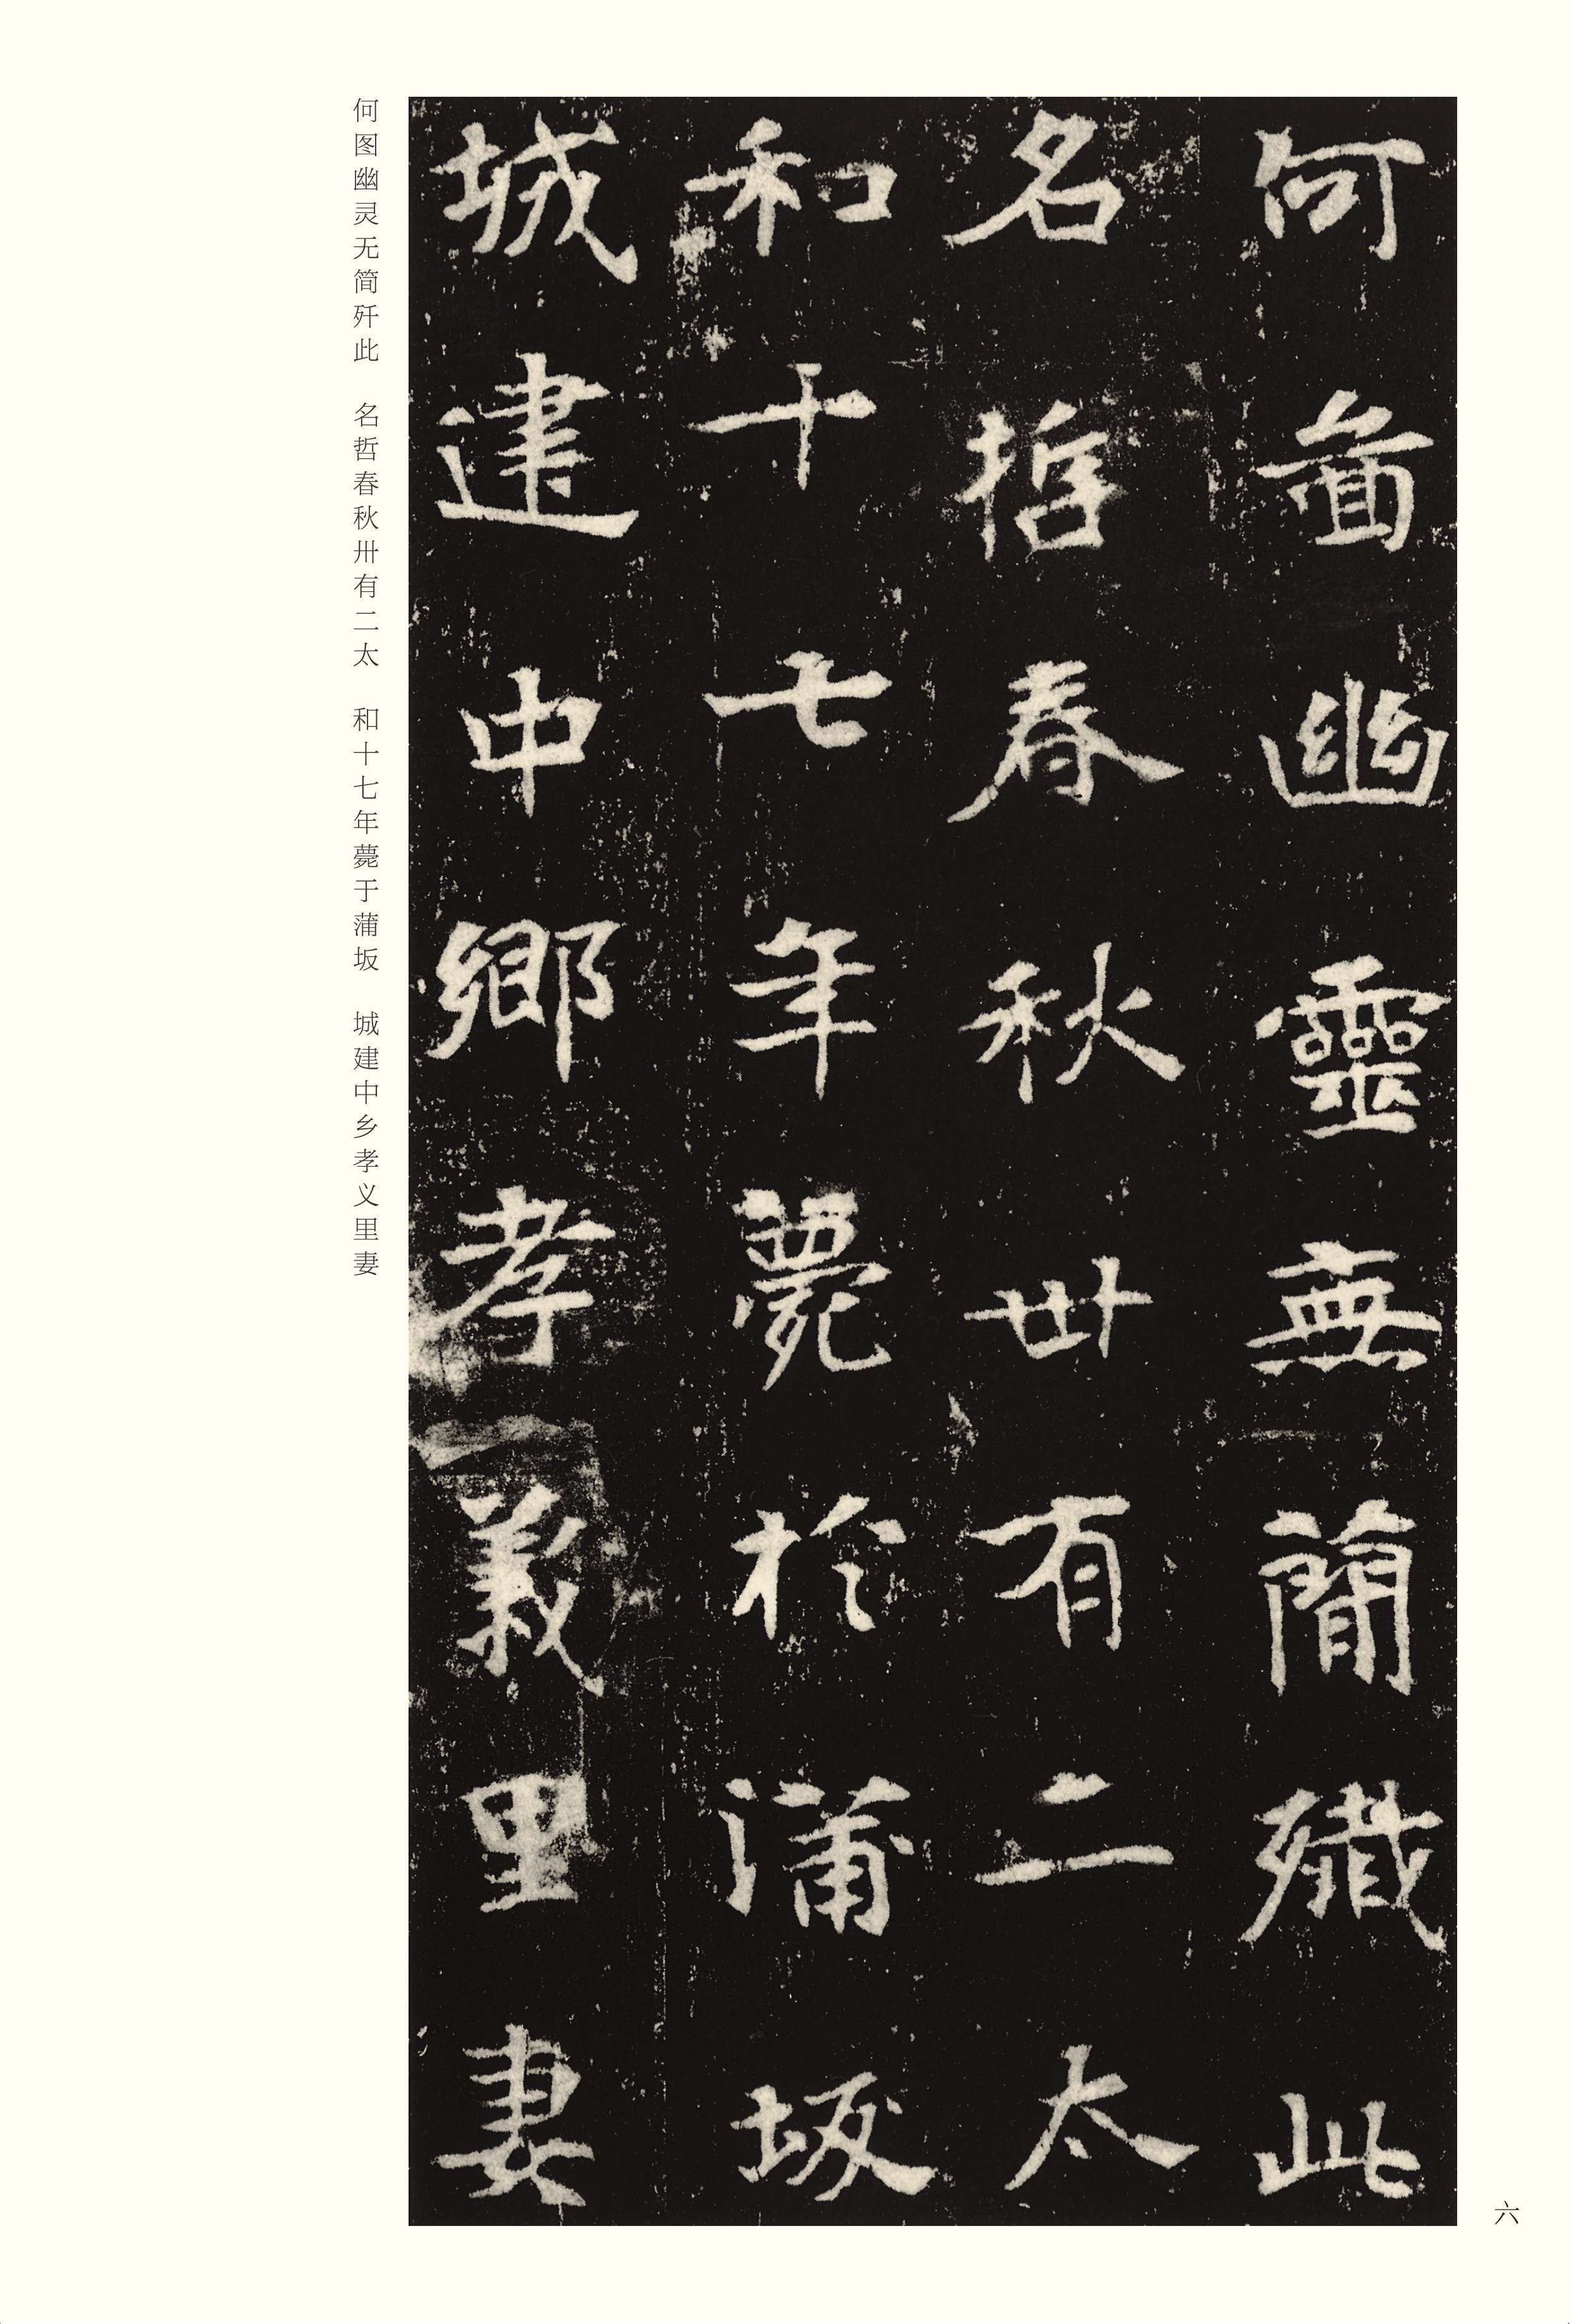 何啚幽靈無簡殲此
名哲春秋卅有二太
和十七年薨於蒲坂
城建中鄉孝義里妻
何图幽灵无简歼此　名哲春秋卅有二太　和十七年薨于蒲坂　城建中乡孝义里妻
六